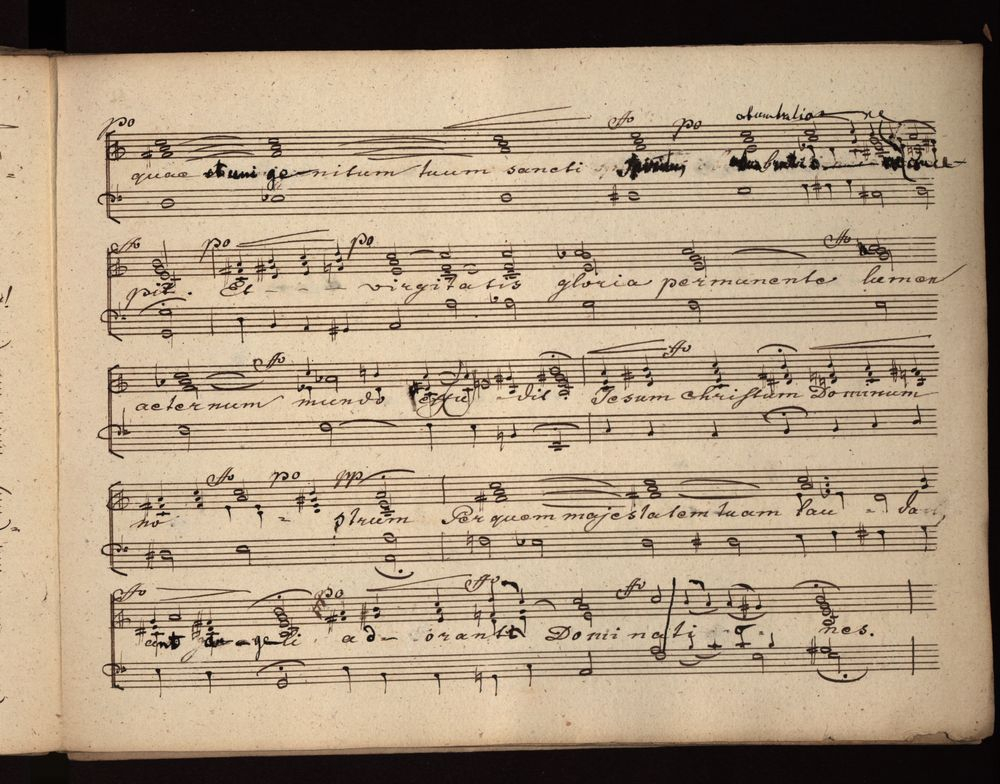 po ffo po obumbratio ne
quae et uni ge-nitum tuum sancti Spiritus obumbratio - ne conce-
ffo po po ffo
pit. Et - - - virgitatis gloria permanente lumen
ffo ffo
aeternum mundo effu - dit Jesum Christum Dominum
ffo po pp
no - strum Per quem majestatem tuam lau - dant
ffo po ffo ffo
ant An-ge-li ad-orant Domi nati o - nes.